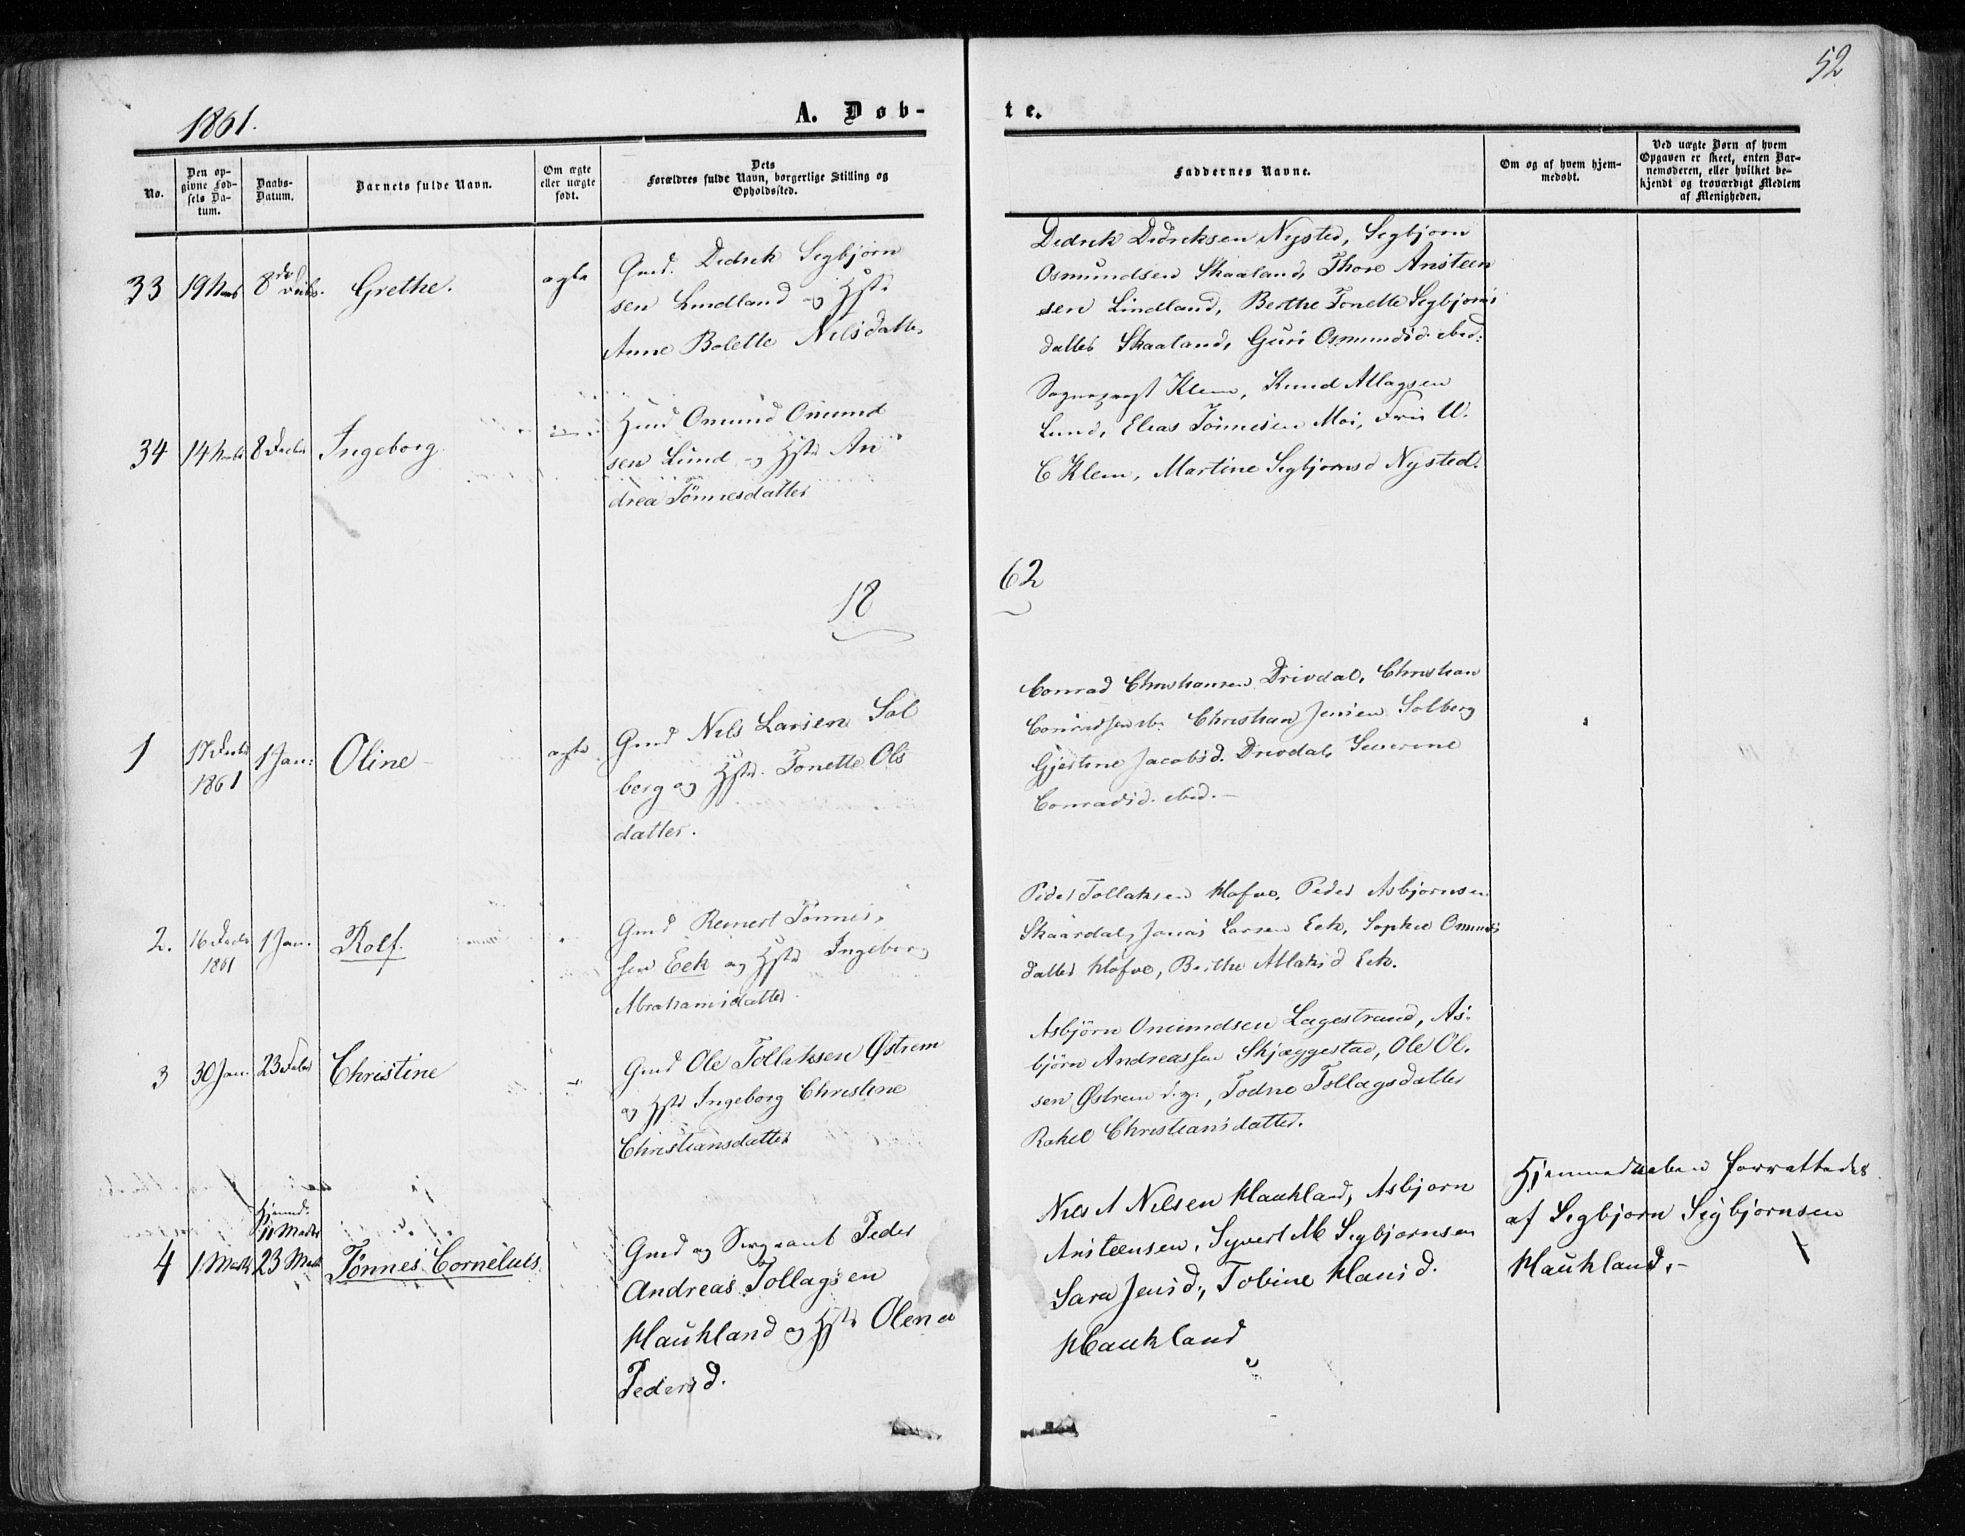 52
1861.
A. Døb-
te.
No.
Den op-
givne Fød-
sels Da-
tum.
Daabs-
Datum.
Barnets fulde Navn.
Om ægte
eller uægte
født.
Dets
Forældres fulde Navn, borgerlige Stilling og
Opholdssted.
Faddernes Navne.
Om og af hvem hjem-
medøbt.
Ved uægte Børn af hvem
Opgaven er skeet, enten Bar-
nemoderen, eller hvilket be-
kjendt og troværdigt Medlem
af Menigheden.
33 19 8 Grethe. ægte
Gmd. Didrik Segbjørn
sen Lindland og Hstr
Anne Bolette Nilsdatter
Didrik Didriksen Nysted, Segbjørn
Osmundsen Skaaland, Thore Ansteen
sen Lindland, Berthe Tonette Segbjørns
datter Skaaland, Guri Osmundsd. ibid.
34 14 8 Decbr Ingeborg
Hmd Omund Omund
sen Lund og Hstr An
drea Tönnesdatter
Klem, Knud Atlagsen
Lund, Elias Tönnesen Moi, Fru W.
C Klem, Martine Segbjørnsd Nysted.
18
62
1 17 Decbr
1861 1 Jan: Oline ægte
Gmd Nils Larsen Sol
berg og Hstr. Tonette Ols
datter.
Conrad Christiansen Drivdal, Christian
Conradsen ib. Christian Jensen Solberg
Gjertine Jacobsd. Drivdal, Severine
Conradsd. ibid.
2. 16 Decbr
1861 1 Jan. Rolf.
Gmd Reinert Tönnes-
sen Eek og Hstr Ingeborg
Abrahamsdatter.
Peder Tollaksen Hafve, Peder Asbjørnsen
Skaardal, Jonas Larsen Eek, Sophie Omunds
datter Hafve, Berthe Atlaksd Eek.
3 30 Jan. 23 Febr Christine
Gmd Ole Tollaksen Østrem
og Hstr Ingeborg Christine
Christiansdatter
Asbjörn Omundsen Lagestrand, As-
björn Andreassen Skjæggestad, Ole Ol-
sen Østrem d.y., Todne Tollagsdatter
Rakel Christiansdatter.
Hjemmd.
11 Marts
4 1 Marts 23 Marts Tønnes Cornelius
Gmd og Sergeant Peder
Andreas Tollagsen
Haukland og Hstr Olena
Pedersd.
Nils A Nilsen Haukland, Asbjørn
Ansteensen, Syvert M Segbjørnsen
Sara Jensd., Tobine Hansd.
Haukland
Hjemmedaaben forrettedes
af Segbjørn Segbjørnsen
Haukland.